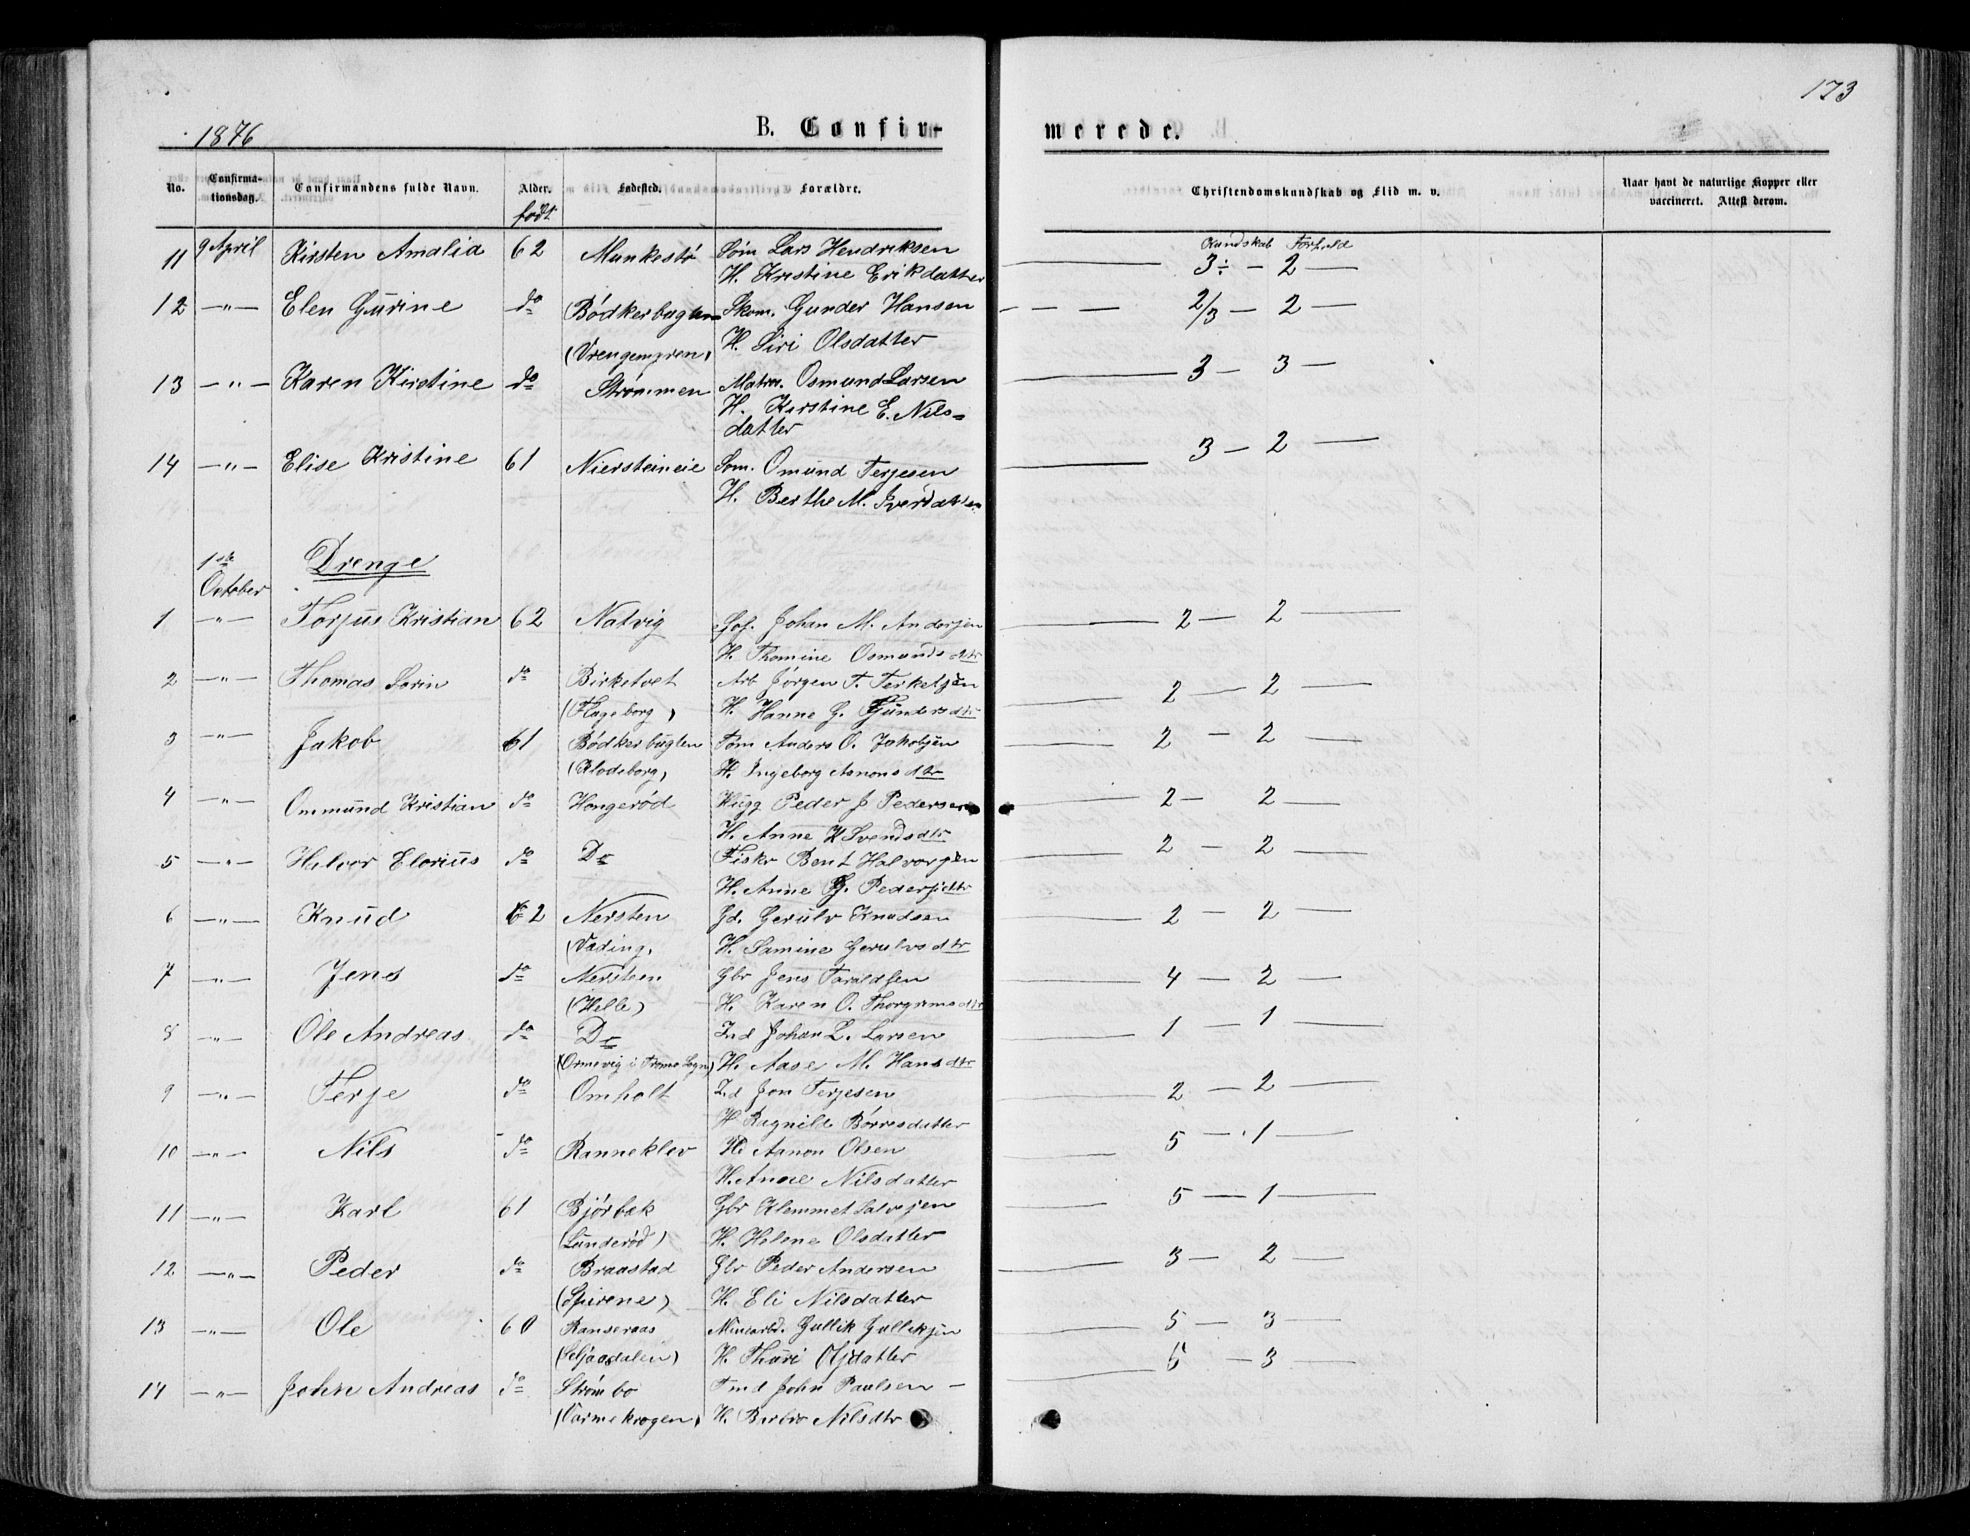 173
1876
B. Confirmerede.
No. Confirmationsdag. Confirmandens fulde Navn. Alder. født Fødested. Forældre. Christendomskundskab og Flid m. v. Naar havt de naturlige Kopper eller vaccineret. Attest derom.
Kundskab Forhold
11 9 April Kirsten Amalia 62 Munkestø Søm Lars Hendriksen 3÷ — 2
H. Kristine Erikdatter
12 —"— Elen Gurine do Bødkerbugten Skom. Gunder Hansen 2/3 — 2
(Vrengemyren) H. Siri Olsdatter
13 —"— Karen Kirstine do Strømmen Matros. Osmund Larsen 3 — 3
H. Kirstine E. Nils=
datter
14 —"— Elise Kristine 61 Niersteineie Søm. Omund Terjesen 3 — 2
H. Berthe M. Iversdatter
1ste October Drenge
1 —"— Torjus Kristian 62 Natvig Johan M. Andersen 2 — 2
H. Thomine Osmundsdtr
2 —"— Thomas Sorin do Birketvet Arb Jørgen T. Terkelsen 2 — 2
(Flageborg) H. Hanne G. Gundersdtr
3 —"— Jakob 61 Bødkerbugten Tøm Anders O. Jakobsen 2 — 2
(Klodeborg) H. Ingeborg Aanonsdtr
4 —"— Ommund Kristian do Hongerød Hugg Peder J Pedersen 2 — 2
H. Anne K Svendsdtr
5 —"— Halvor Elorius do Do Fisker Bent Halvorsen 2 — 2
H. Anne G. Pedersdtr
6 —"— Knud 62 Nersten Gd. Gerulv Knudsen 2 — 2
(Vading) H. Samine Gerulvsdtr
7 —"— Jens do Nersteen Gbr Jens Taraldsen 4 — 2
(Helle) H. Karen O. Thorgrimsdtr
8 —"— Ole Andreas do Do Ind Johan L. Larsen 1 — 1
(Ormevig i Tromø Sogn) H. Aase M. Hansdtr
9 —"— Terje do Omholt Jon Terjesen 2 — 2
H Ragnild Børresdatter
10 —"— Nils do Ranneklev Aanon Olsen 5 — 1
H. Anne Nilsdatter
11 —"— Karl 61 Bjørbæk Gbr Klemmet Salvesen 5 — 1
(Lunderød) H. Helene Olsdatter
12 —"— Peder do Braastad Gbr Peder Andersen 3 — 2
(Spirene) H. Eli Nilsdatter
13 —"— Ole 60 Ranseraas Minearbd. Gullik Gulliksen 5 — 3
(Seljaasdalen) H. Thuri Olsdatter
14 —"— John Andreas do Strømbo Tmd John Paulsen — 5 — 3
(Varmekrogen) H. Berbro Nilsdtr